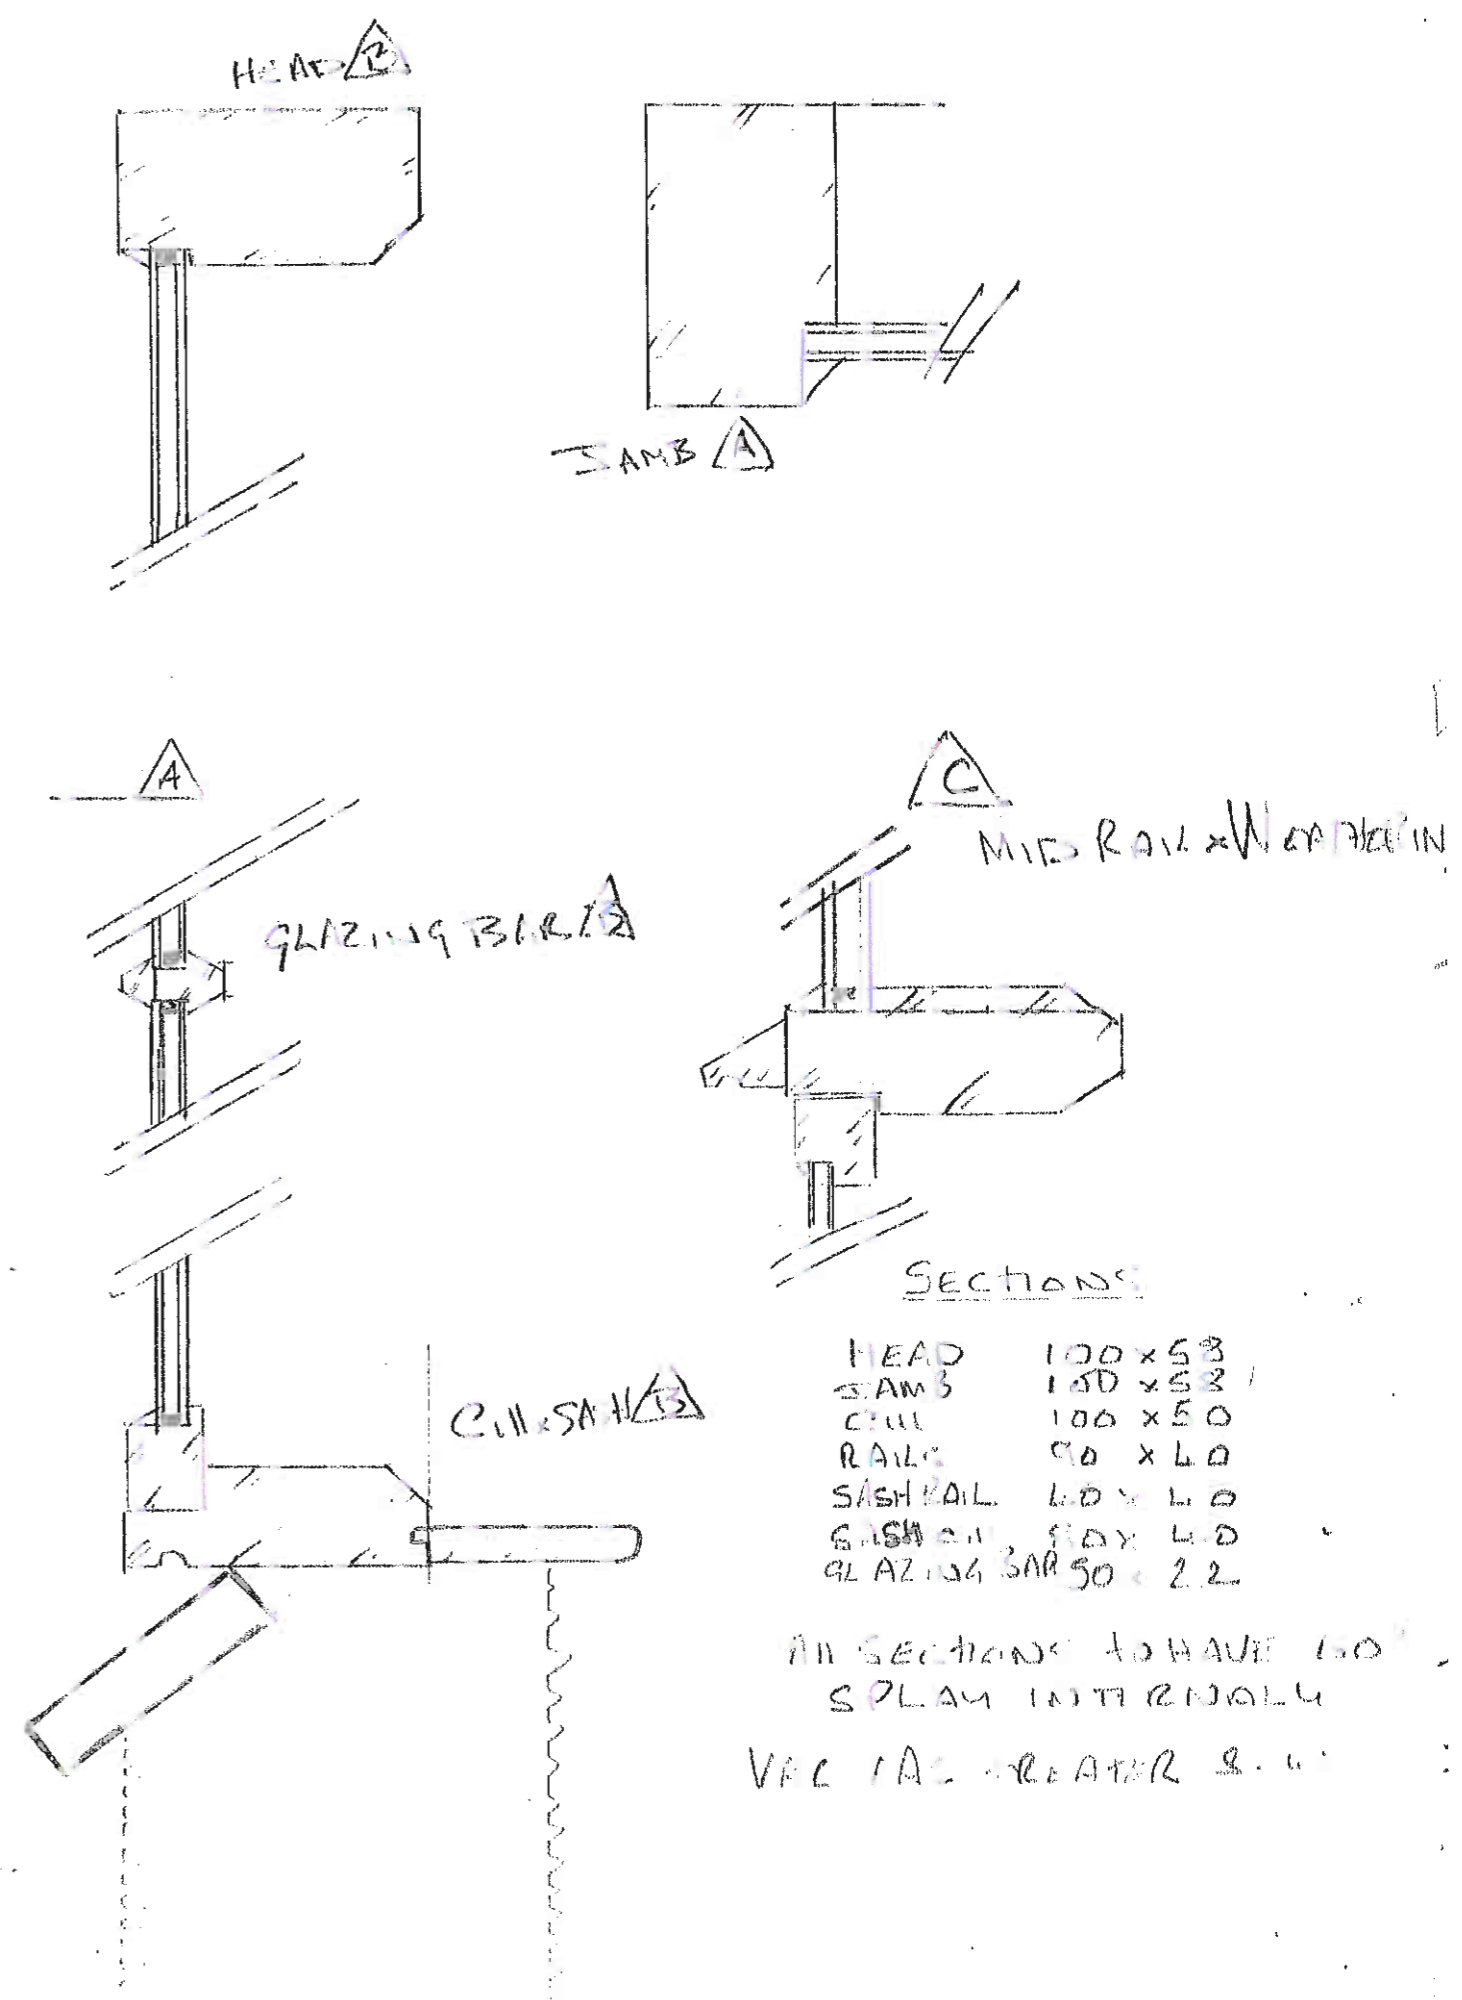 HEAD B
JAMB A
A
C
MID RAIL x
GLAZING BAR B
Cill x SASH B
SECTIONS
HEAD 100 x 53
JAMB 100 x 53
Cill 100 x 50
RAILS 90 x 40
SASH RAIL 40 x 40
SASH Cill x 40
GLAZING BAR 50 22
All SECTIONS to HAVE
SPLAY INTERNALY